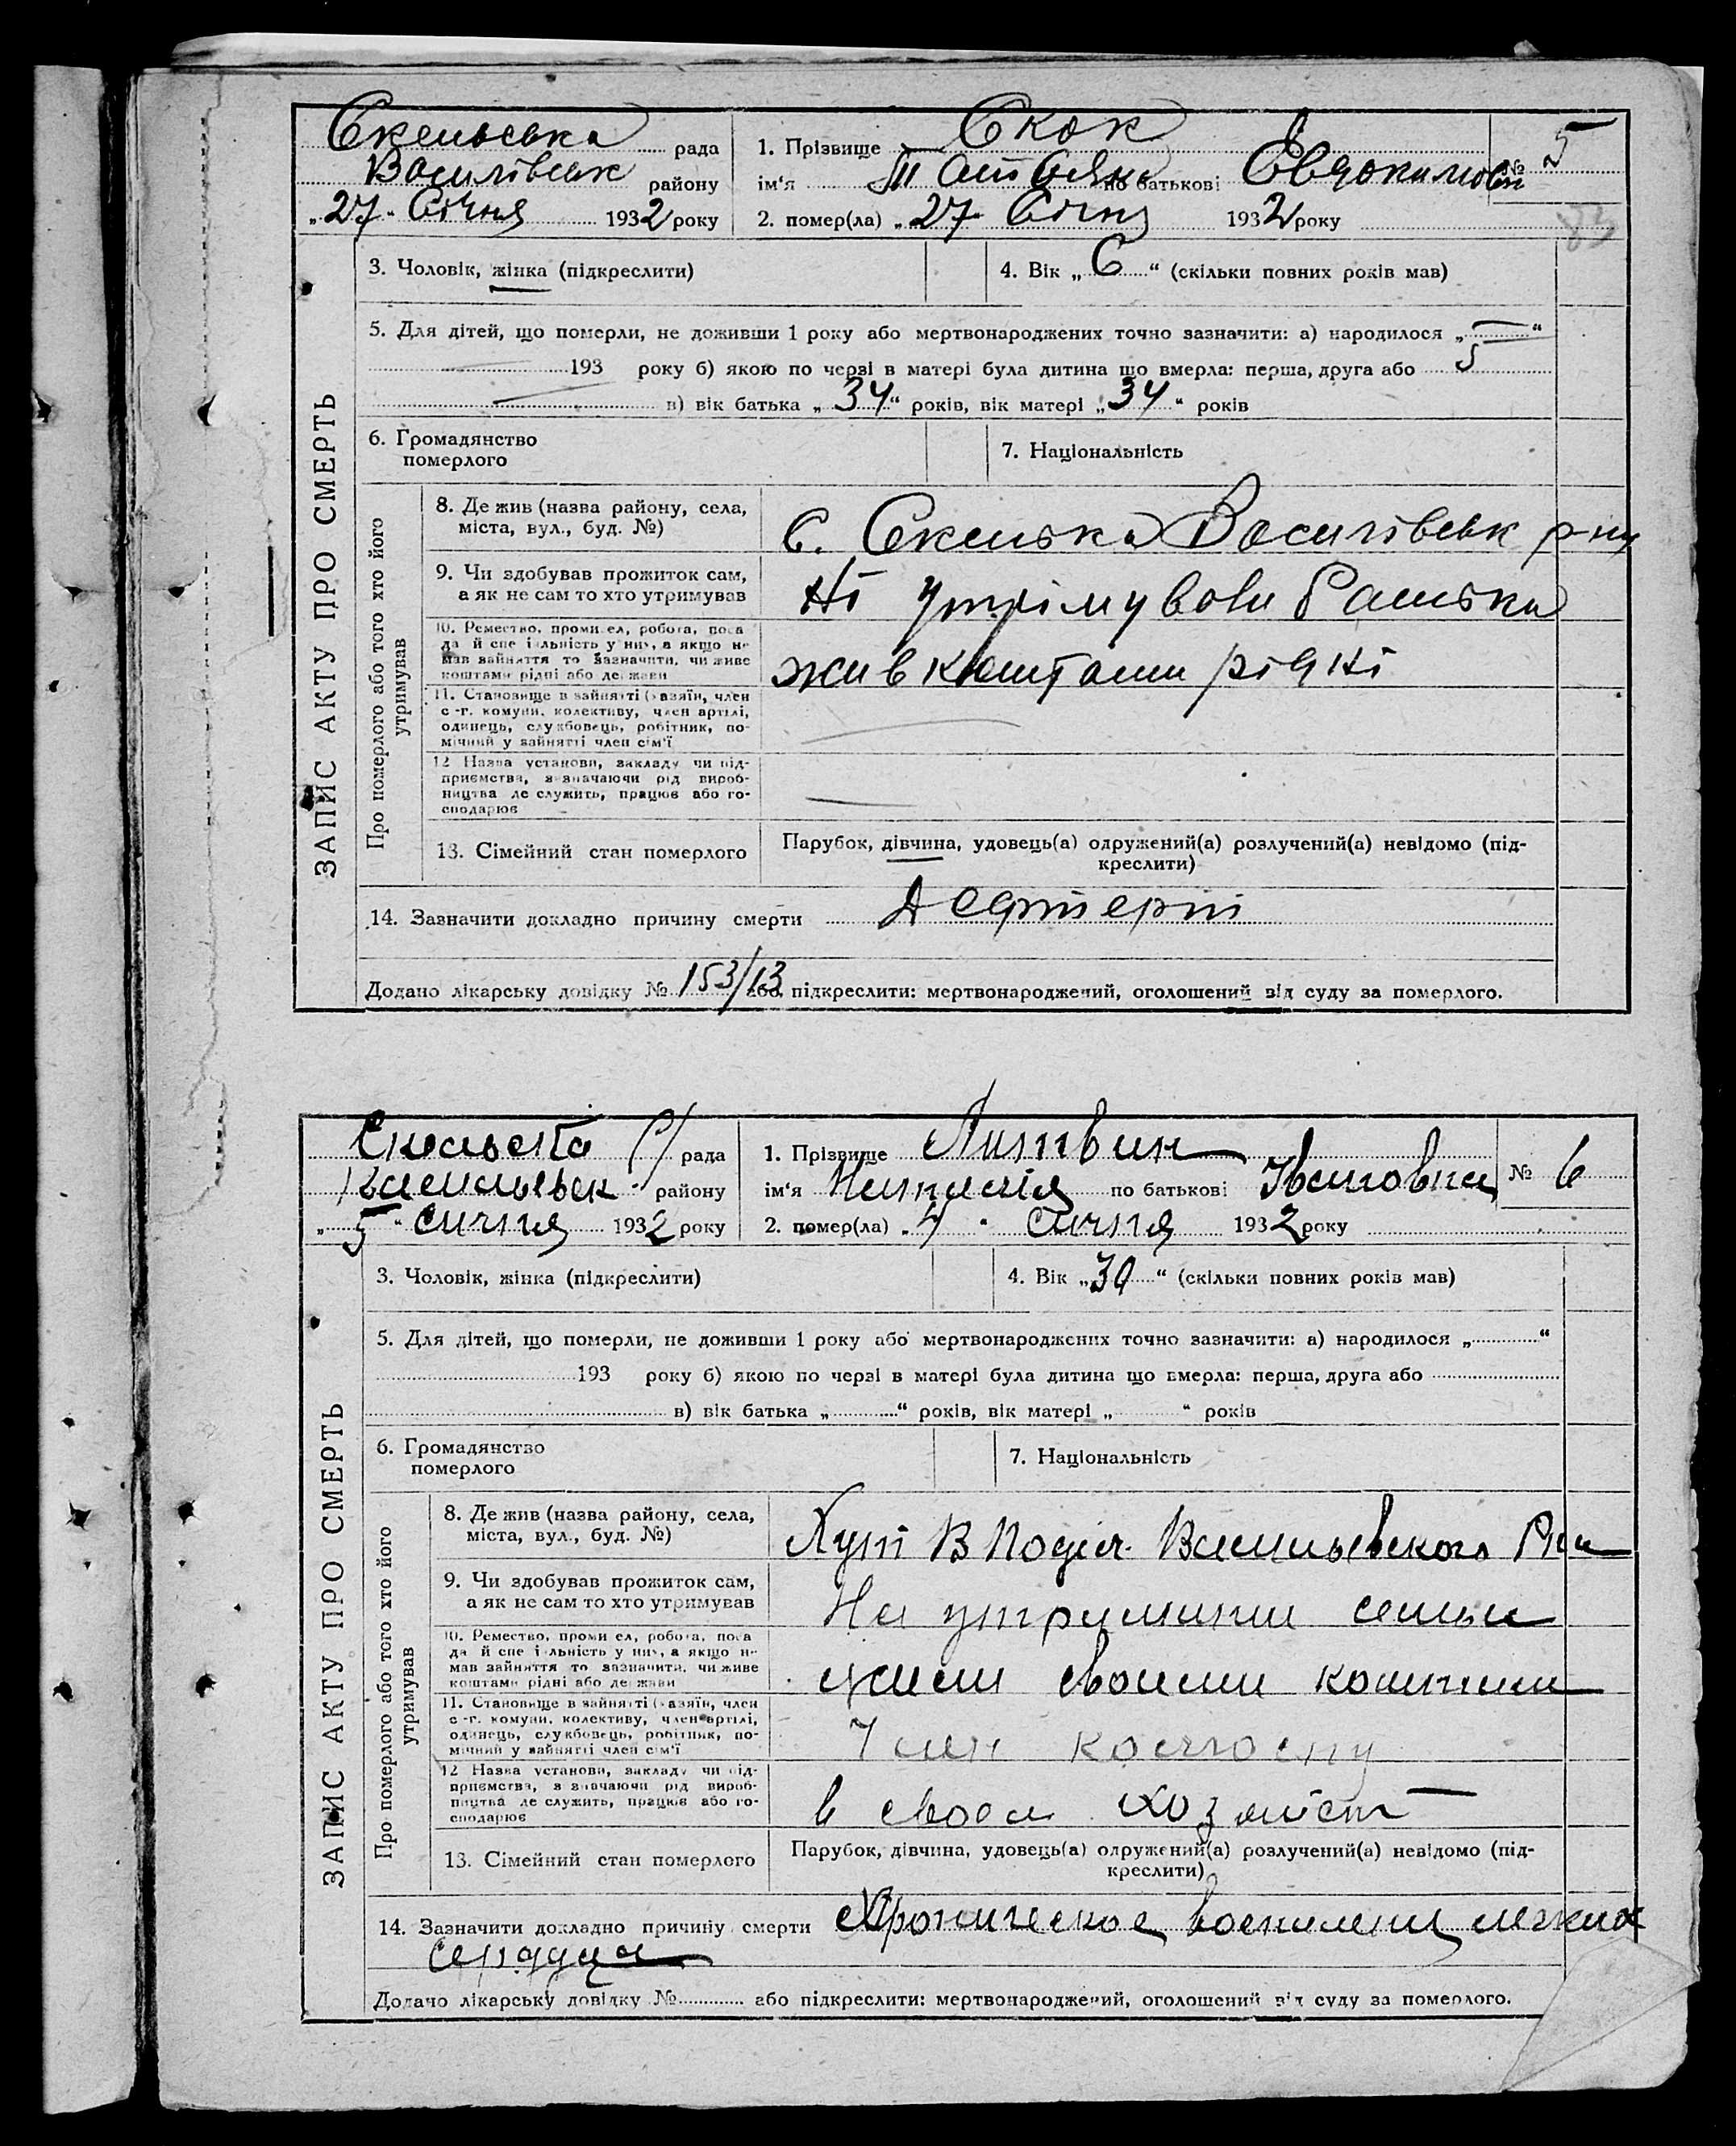 Скельська рада
Василівськ району
„27“ Січня 1932 року
1. Прізвище Скок
ім‘я по батькові
№ 5
2. помер(ла) „27 Січня 1932 року
83
ЗАПИС АКТУ ПРО СМЕРТЬ
3. Чоловік, жінка (підкреслити)
4. Вік „6“ (скільки повних років мав)
5. Для дітей, що померли, не доживши 1 року або мертвонароджених точно зазначити: а) народилося „—“
193 року б) якою по черзі в матері була дитина що вмерла: перша, друга або 5
в) вік батька „34“ років, вік матері „34“ років
6. Громадянство
померлого
7. Національність
Про померлого або того хто його
утримував
8. Де жив (назва району, села,
міста, вул., буд. №)
с. Скелька Василівськ р-ну
9. Чи здобував прожиток сам,
а як не сам то хто утримував
Ні утрімували батька
10. Ремество, промисел, робота, поса
да й спеціальність у них, а якщо не
мав зайняття то зазначити, чи живе
коштами рідні або держави
жив коштами рідні
11. Становище в зайнятті (хазяїн, член
с.-г. комуни, колективу, член артілі,
одинець, службовець, робітник, по-
мічний у зайнятті член сім‘ї
12 Назва установи, закладу чи під-
приємства, зазначаючи рід вироб-
ництва де служить, працює або го-
сподарює
13. Сімейний стан померлого
Парубок, дівчина, удовець(а) одружений(а) розлучений(а) невідомо (під-
креслити)
14. Зазначити докладно причину смерти
Додано лікарську довідку № 153/13 або, підкреслити: мертвонароджений, оголошений від суду за померлого.
рада
району
„5“ Січня 1932 року
1. Прізвище Литвин
ім‘я Наталія по батькові Івановна
№ 6
2. помер(ла) „4“ Січня 1932 року
ЗАПИС АКТУ ПРО СМЕРТЬ
3. Чоловік, жінка (підкреслити)
4. Вік „30“ (скільки повних років мав)
5. Для дітей, що померли, не доживши 1 року або мертвонароджених точно зазначити: а) народилося „“
193 року б) якою по черзі в матері була дитина що вмерла: перша, друга або
в) вік батька „“ років, вік матері „“ років
6. Громадянство
померлого
7. Національність
Про померлого або того хто його
утримував
8. Де жив (назва району, села,
міста, вул., буд. №)
Хут Васильевского Рна
9. Чи здобував прожиток сам,
а як не сам то хто утримував
На утримани семьи
10. Ремество, промисел, робота, поса
да й спеціальність у них, а якщо не
мав зайняття то зазначити, чи живе
коштами рідні або держави
жили своими коштами
11. Становище в зайнятті (хазяїн, член
с.-г. комуни, колективу, член артілі,
одинець, службовець, робітник, по-
мічний у зайнятті член сім‘ї
Член колгоспу
12 Назва установи, закладу чи під-
приємства, зазначаючи рід вироб-
ництва де служить, працює або го-
сподарює
в своем хозяйст
13. Сімейний стан померлого
Парубок, дівчина, удовець(а) одружений(а) розлучений(а) невідомо (під-
креслити)
14. Зазначити докладно причину смерти Хроническое воспалени легких
сердца
Додано лікарську довідку № або підкреслити: мертвонароджений, оголошений від суду за померлого.